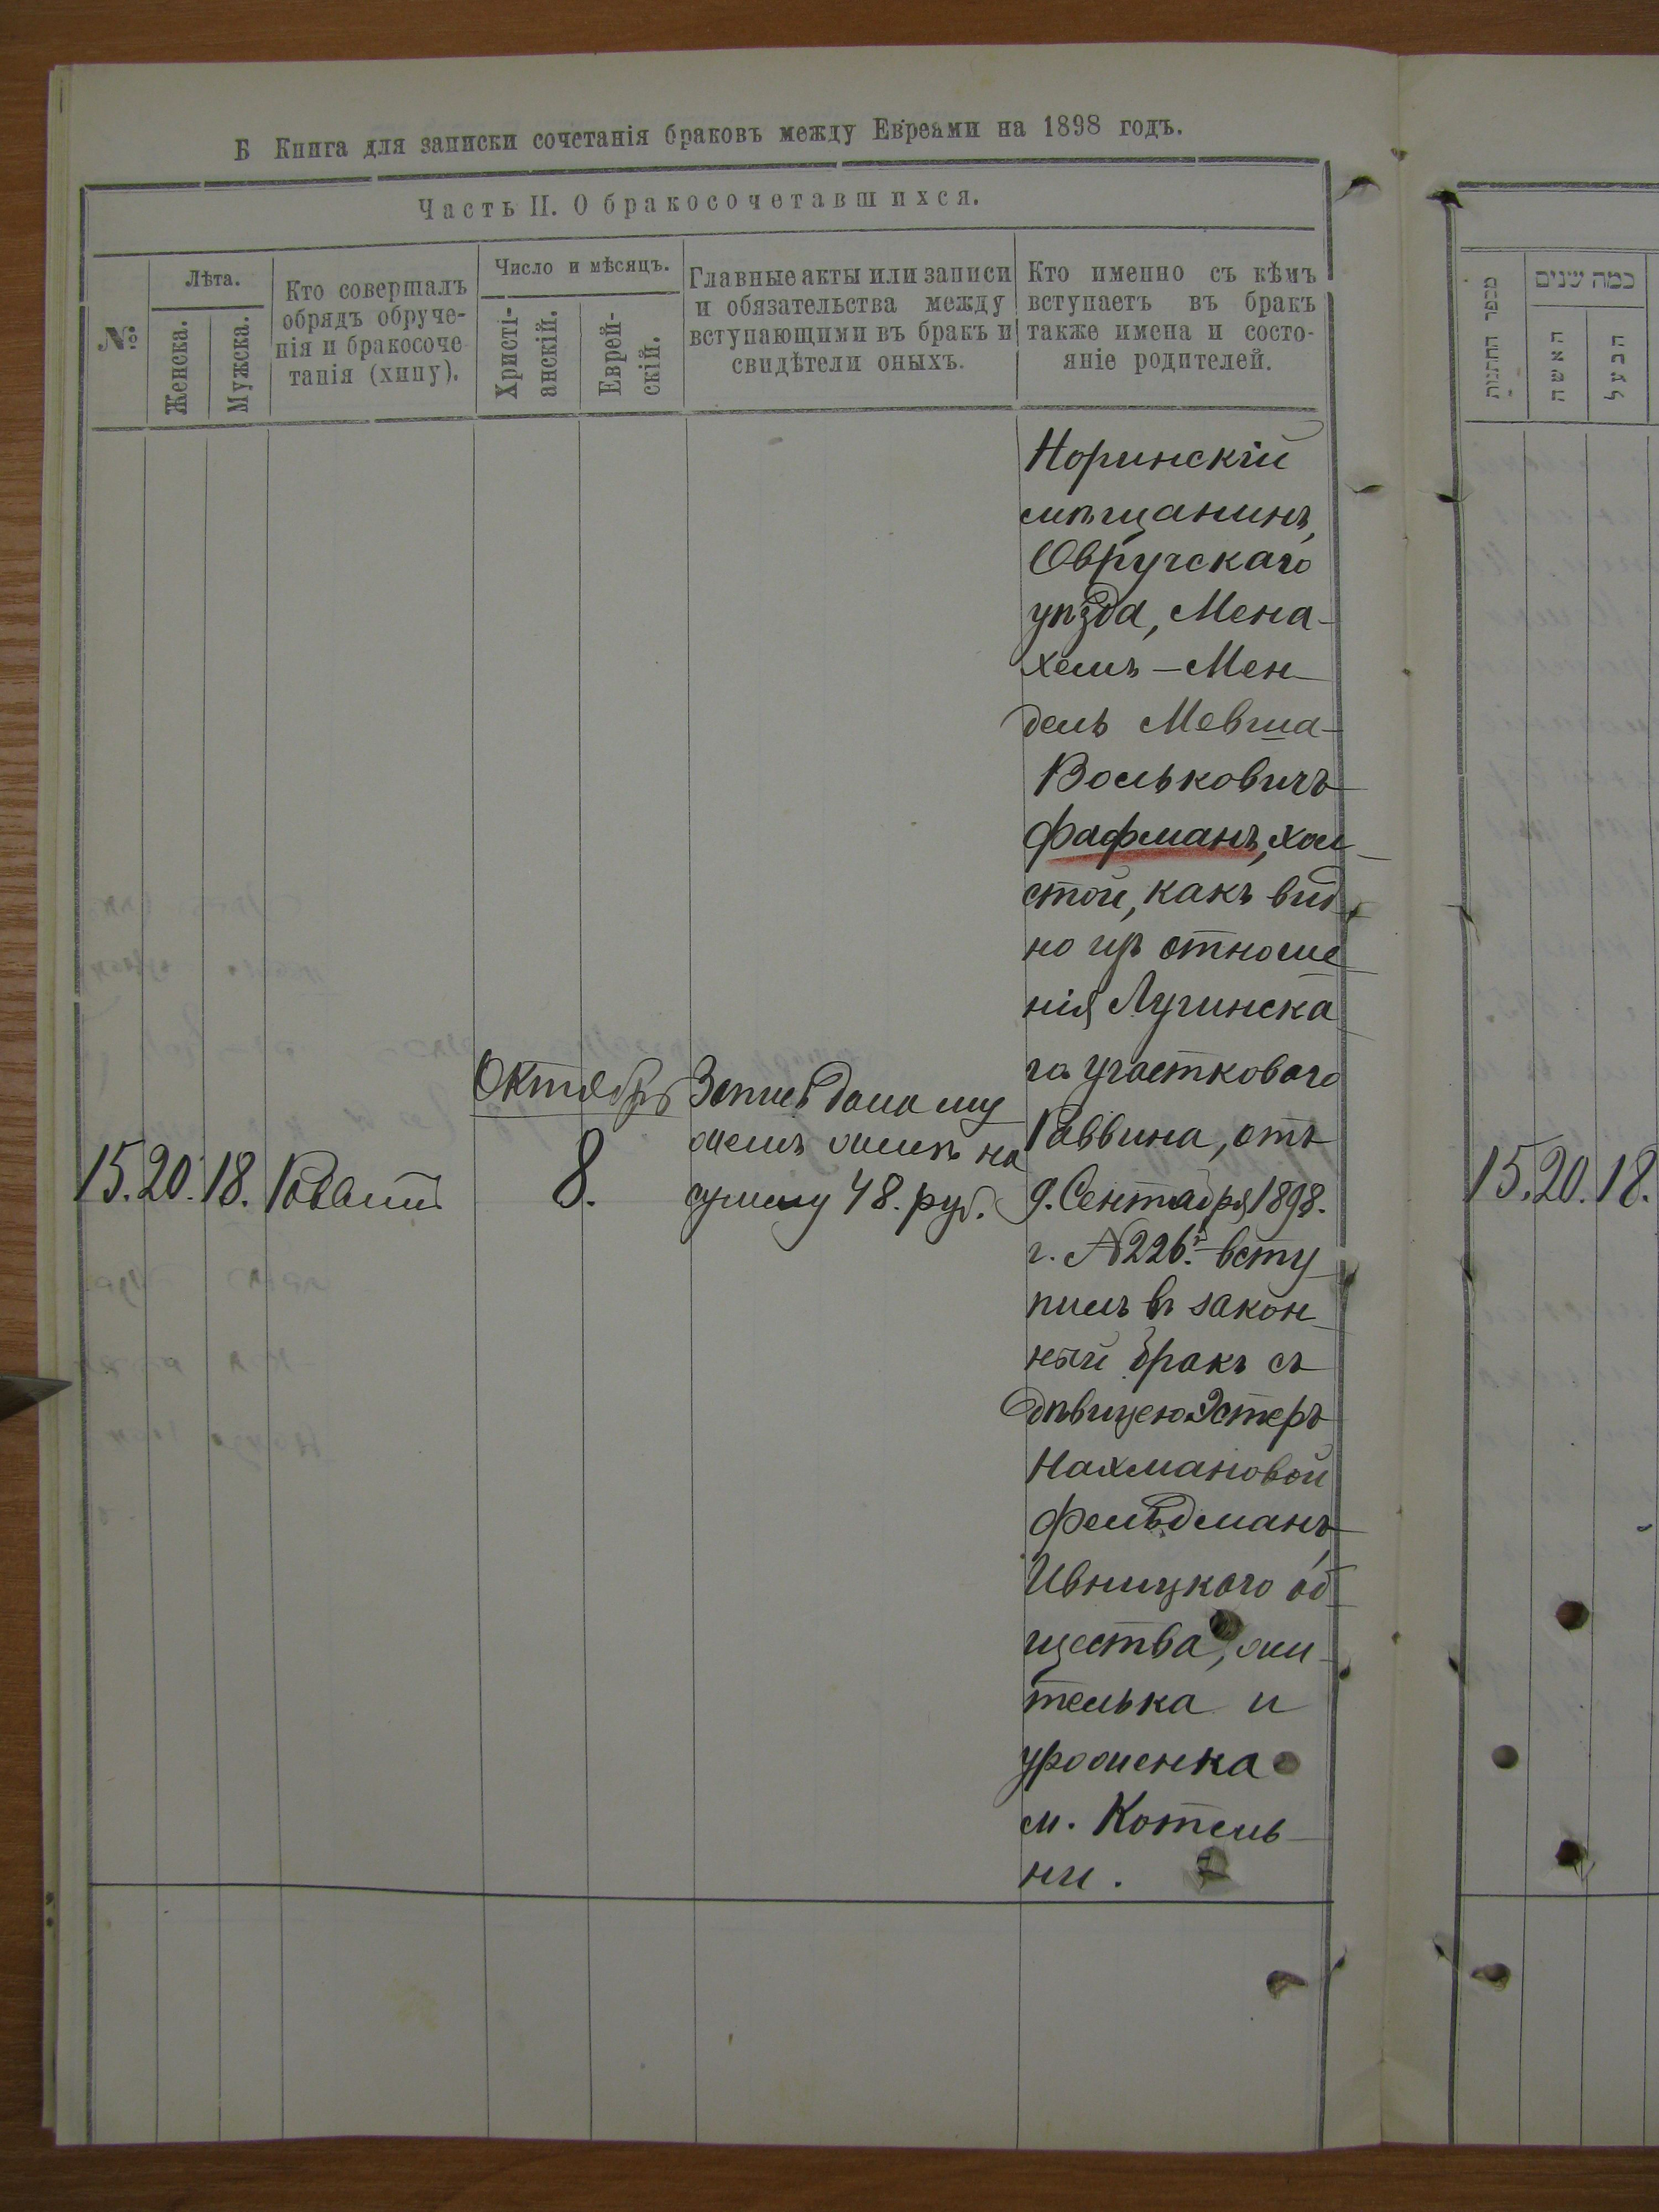 Б Книга для записки сочетанія браковъ между Евреями на 1898 годъ.
Часть II. О бракосочетавшихся.
№
Лѣта.
Женска.
Мужска.
Кто совершалъ
обрядъ обруче-
нія и бракосоче
танія (хипу).
Число и мѣсяцъ.
Христі-
анскій.
Еврей-
скій.
Главные акты или записи
и обязательства между
вступающими въ бракъ и
свидѣтели оныхъ.
Кто именно съ кѣмъ
вступаетъ въ бракъ
также имена и состо-
яніе родителей.
15. 20. 18.
Октябрь
8.
Запись дана му
жемъ женѣ на
сумму 48. руб.
Норинскій
мѣщанинъ,
Овручскаго
уѣзда, Мена-
хемъ-Мен-
дель Мевша-
Вольковичъ
Фафманъ, хол-
стой, какъ вид-
но изъ отноше
нія Лугинска
го участковаго
Раввина, отъ
9. Сентября 1898.
г. №226. всту
пилъ въ закон-
ный бракъ съ
дѣвицею Эстеръ
Нахмановой
Фельдманъ,
Ивницкаго об
щества, жи-
телька и
уроженка
м. Котель-
ни.
מספר החתונות
כמה שנים
האשה
הבעל
15. 20. 18.